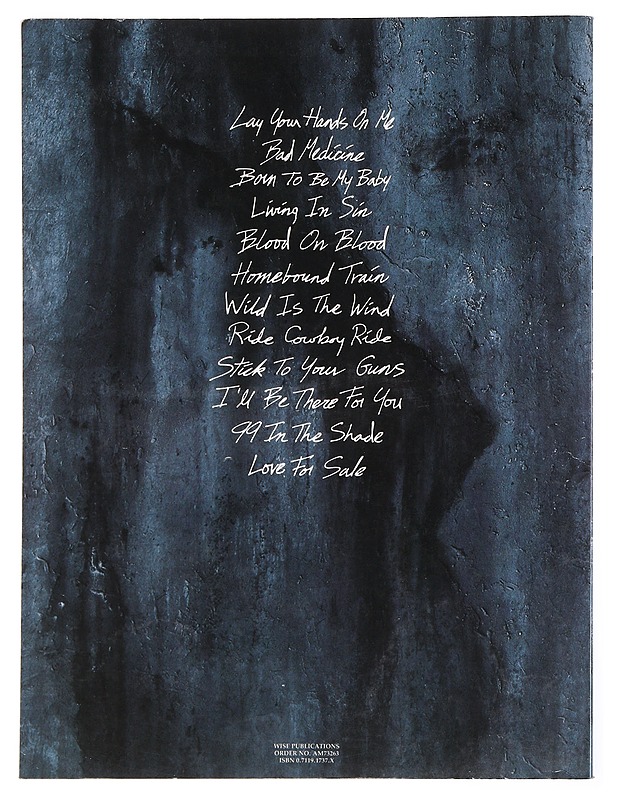 Lay Your Hands On Me
Bad Medicine
Born To Be My Baby
Living In Sin
Blood On Blood
Homebound Train
Wild Is The Wind
Ride Cowboy Ride
Stick To Your Guns
I'll Be There For You
99 In The Shade
Love For Sale
WISE PUBLICATIONS
ORDER NO. AM73263
ISBN 0.7119.1737.X